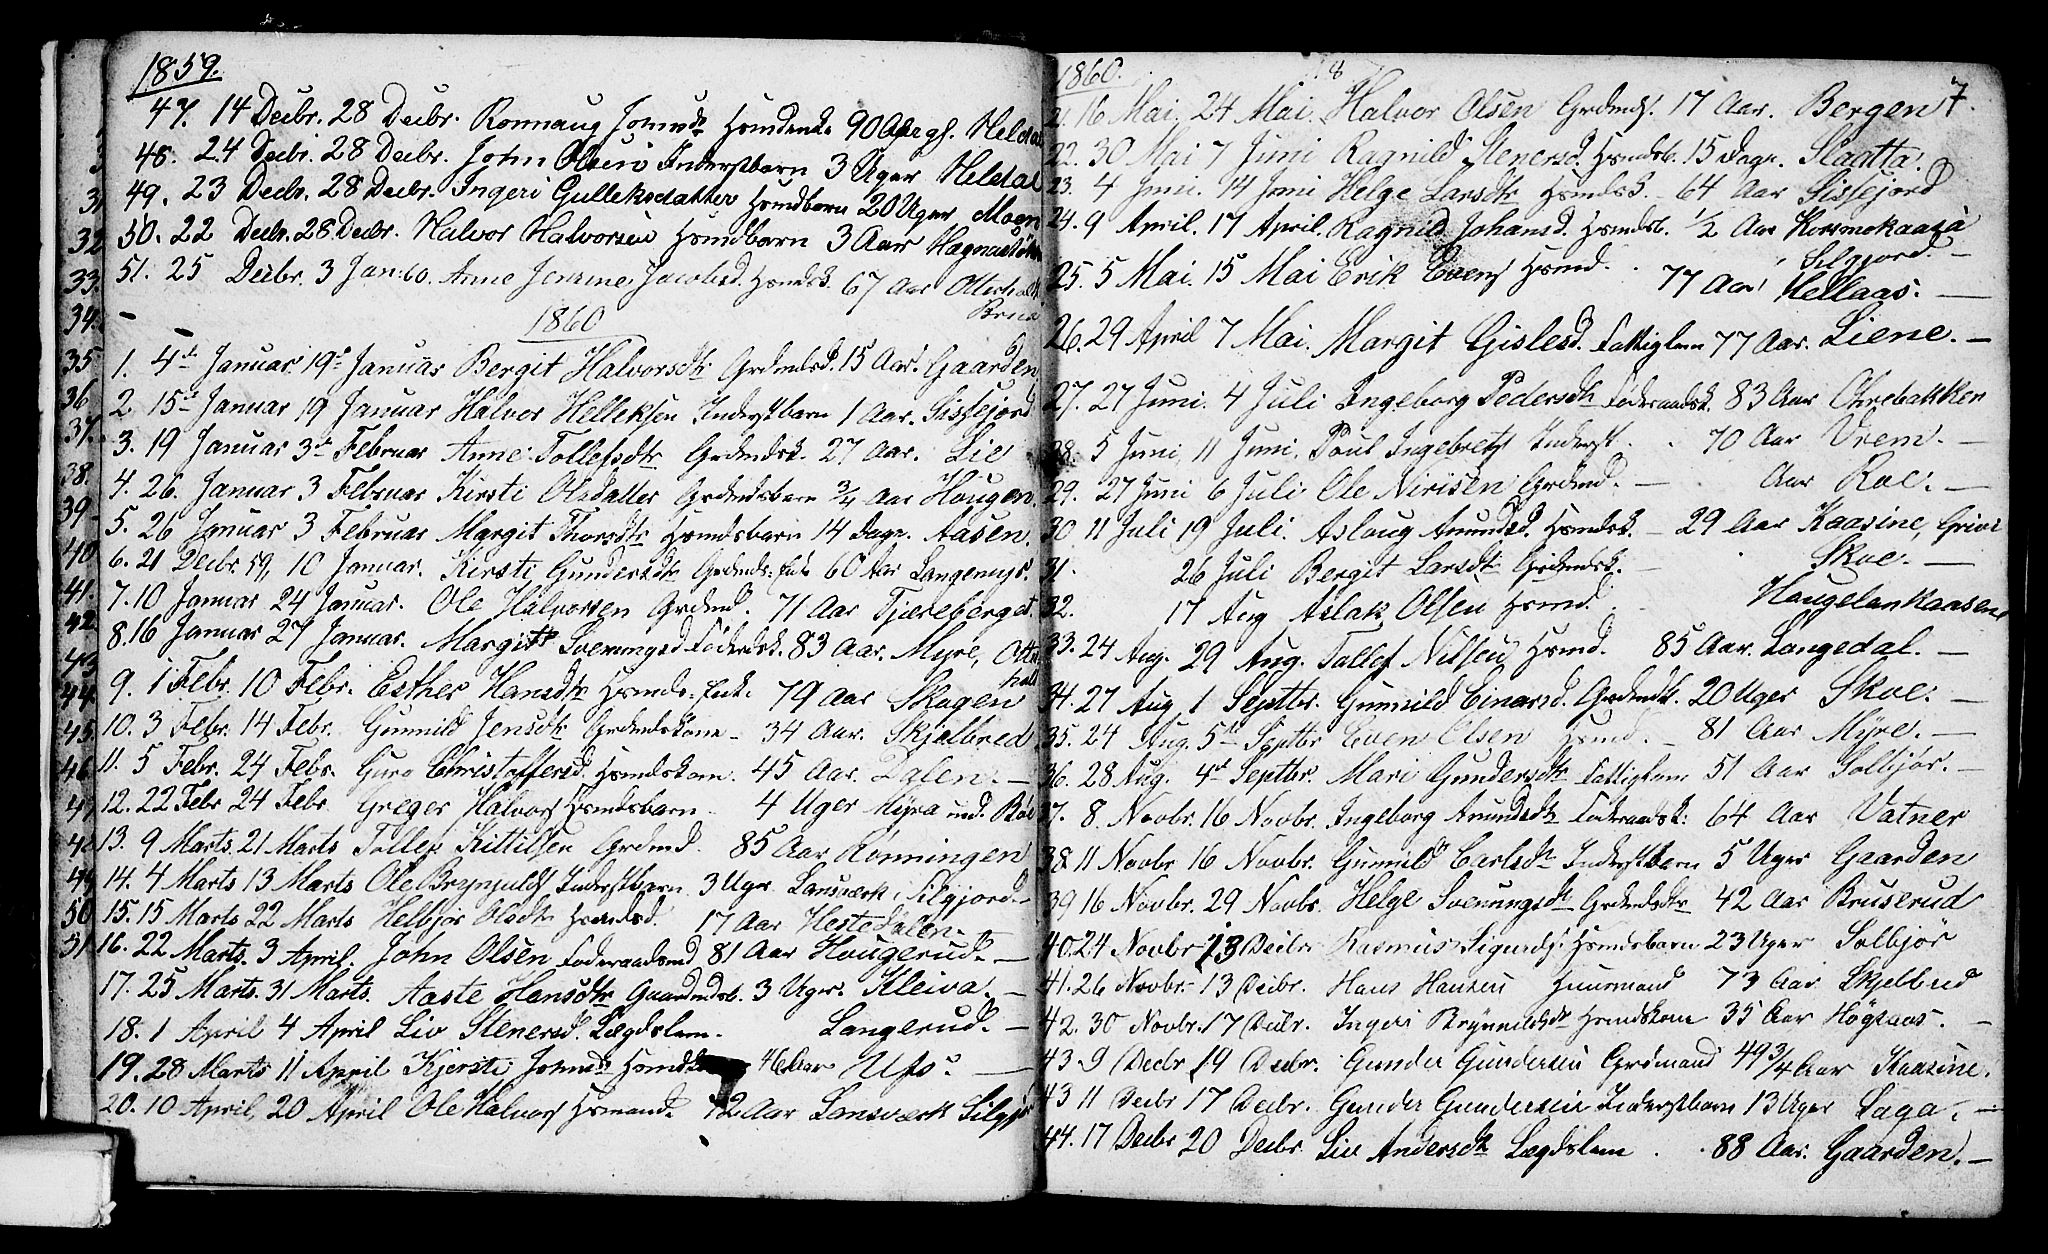 1859.
47. 14 Decbr. 28 Decbr. Ronnaug Johnsdtr Hsmdenke 90 Aar gl. Heldal
48. 24 Decbr. 28 Decbr. John Olsen Inderstbarn 3 Uger Heldal
49. 23 Decbr. 28 Decbr. Ingeri Gulleksdatter Hsmdbarn 20 Uger Moen
50. 22 Decbr. 28 Decbr. Halvor Halvorsen Hsmdbarn 3 Aar
51. 25 Decbr. 3 Jan. 60. Anne Jacobsd. Hsmdsk. 67 Aar
1860
1. 4de Januar. 19de Januar Bergit Halvorsdtr Grdmdsd. 15 Aar. Gaarden.
2. 15de Januar 19 Januar Halvor Helleksen Inderstbarn 1 Aar. Sissejord
3. 19 Januar 3de Februar Anne Tollefsdtr Grdmdsk. 27 Aar. Lie
4. 26. Januar 3 Februar Kirsti Olsdatter Grdmdsbarn 3/4 Aar Hougen.
5. 26 Januar 3 Februar Margit Thorsdtr Hsmdsbarn 14 Dage. Aasen.
6. 21 Decbr. 59, 10 Januar. Kirsti Gundersdtr Grdmds. Enke 60 Aar Langemyr.
7. 10 Januar 24 Januar. Ole Halvorsen Grdmd. 71 Aar Tjereberget.
8. 16 Januar 27 Januar. Margit Svenungsd Föderdsk. 83 Aar. Myre, Otter
holt
9. 1 Febr. 10 Febr. Esther Hansdtr Hsmds. Enk. 79 Aar Skogen
10. 3 Febr. 14 Febr. Gunnild Jensdtr Grdmdskone 34 Aar. Skjelbred
11. 5 Febr. 24 Febr. Guro Christoffersd. Hsmdskone. 45 Aar. Dalen. —
12. 22 Febr 24 Febr. Greger Halvors Hsmdsbarn 4 Uger Myra und. Böe
13. 9 Marts. 21 Marts Tollef Kittilsen Grdmd. 85 Aar Rönningen
14. 4 Marts 13 Marts Ole Brynjulds Inderstbarn 3 Uger Lansværk, Silgjord.
15. 15 Marts 22 Marts Helbjör Olsdtr Hsmdsd. 17 Aar Hestedalen.
16. 22 Marts. 3 April. John Olsen Föderaadsmd 81 Aar Hougerud. —
17. 25 Marts. 31 Marts. Aaste Hansdtr Gaardmdsb. 3 Uger. Kleiva. —
18. 1 April 4 April Liv Stenersd. Lægdslem. Langerud. —
19. 28 Marts 11 April Kjersti Johnsdtr 46 Aar Ufs. —
20. 10 April 20 April Ole Halvors Hsmand. 72 Aar Lansværk Silgj
1860. 7.
21. 16 Mai. 24 Mai. Halvor Olsen Grdmds. 17 Aar. Bergen
22. 30 Mai 7 Juni Ragnild Stenersd. Hsmdsb. 15 Dage. Slaatta.
23. 4 Juni. 14 Juni Helge Larsdtr Hsmdsk. 64 Aar Sissejord
24. 9 April. 17 April. Ragnild Johansd. Hsmdsb. 1/2 Aar Korsmokaasa
Silgjord. —
25. 5 Mai. 15 Mai Erik Evens Hsmd. 77 Aar Hellaas. —
26. 29 April 7 Mai. Margit Gislesd. Fattiglem 77 Aar. Liene. —
27. 27 Juni. 4 Juli Ingeborg Pedersdtr Föderaadsk. 83 Aar Ohrebakken
28. 5 Juni 11 Juni. Poul Ingebrets Inderst. 70 Aar Vrem. —
29. 27 Juni 6 Juli Ole Nirisen Grdmd. — Aar Roe. —
30 11 Juli 19 Juli. Aslaug Amundsd. Hsmdsk. — 29 Aar Kaasine, Grivi
31. 26 Juli Bergit Larsdtr Grdmdsk. — Skoe. —
32. 17 Aug Aslak Olsen Hsmd. Haugelankaasene
33. 24 Aug. 29 Aug. Tallef Nilsen Hsmd. 85 Aar. Langedal. —
34. 27 Aug 1 Septbr. Gunnild Einarsd. Grdmdsb. 20 Uger Skoe. —
35. 24 Aug. 5te Septbr Even Olsen Hsmd. — 81 Aar Myre. —
36. 28 Aug. 4de Septbr. Mari Gundersdtr Fattiglem 51 Aar Solbjör. —
37. 8. Novbr. 16 Novbr. Ingeborg Amundsdtr Föderaadsk. 64 Aar Vatner
38 11 Novbr 16 Novbr. Gunnild Carlsdtr Inderstbarn 5 Uger Gaarden
39 16 Novbr. 29 Novbr. Helge Svenungsdtr Grdmdsdtr 42 Aar Bruserud
40. 24 Novbr 13 Decbr Rasmus Sigurds. Hsmdsbarn 23 Uger Solbjör
41. 26 Novbr. 13 Decbr. Hans Hansen Huusmand 73 Aar Skjelbred
42. 30 Novbr. 17 Decbr. Ingeri Brynnildsdtr Hsmdskone 35 Aar Högaas. —
43 9 Decbr 19 Decbr. Gunder Gundersen Grdmand 49 3/4 Aar Kaasine.
43 11 Decbr 17 Decbr. Gunder Gundersen Inderstbarn 13 Uger Laga. —
44. 17 Decbr 20 Decbr. Liv Andersdtr Lægdslem. 88 Aar. Gaarden. —